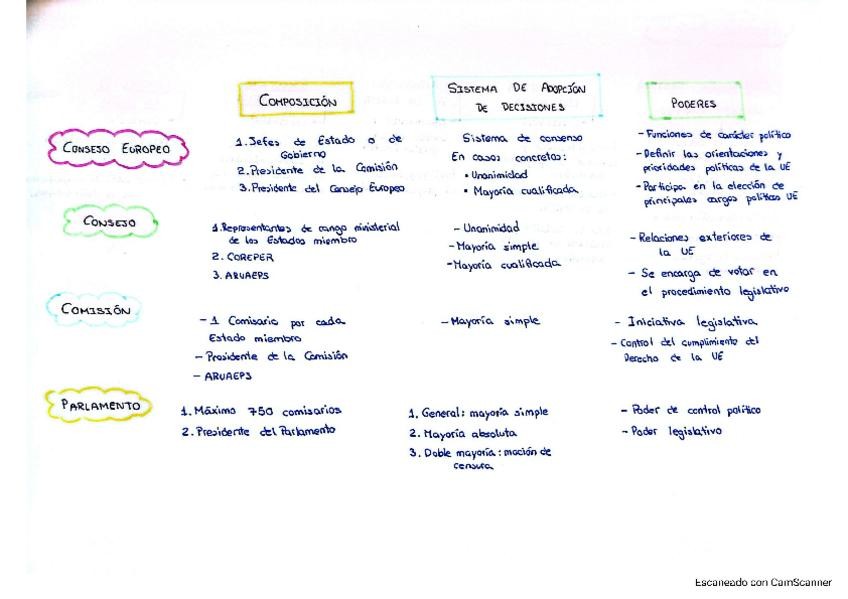 COMPOSICIÓN
SISTEMA DE ADOPCIÓN
DE DECISIONES
PODERES
CONSEJO EUROPEO
1. Jefes de Estado o de
Gobierno
2. Presidente de la Comisión
3. Presidente del Consejo Europeo
Sistema de consenso
En casos concretos:
• Unanimidad
• Mayoría cualificada
- Funciones de carácter político
- Definir las orientaciones y
prioridades políticas de la UE
- Participa en la elección de
principales cargos políticos UE
CONSEJO
1. Representantes de rango ministerial
de los Estados miembro
2. COREPER
3. ARUAEPS
- Unanimidad
- Mayoría simple
- Mayoría cualificada
- Relaciones exteriores de
la UE
- Se encarga de votar en
el procedimiento legislativo
COMISIÓN
- 1 Comisario por cada
Estado miembro
- Presidente de la Comisión
- ARUAEPS
- Mayoría simple
- Iniciativa legislativa
- Control del cumplimiento del
Derecho de la UE
PARLAMENTO
1. Máximo 750 comisarios
2. Presidente del Parlamento
1. General: mayoría simple
2. Mayoría absoluta
3. Doble mayoría: moción de
censura
- Poder de control político
- Poder legislativo
Escaneado con CamScanner